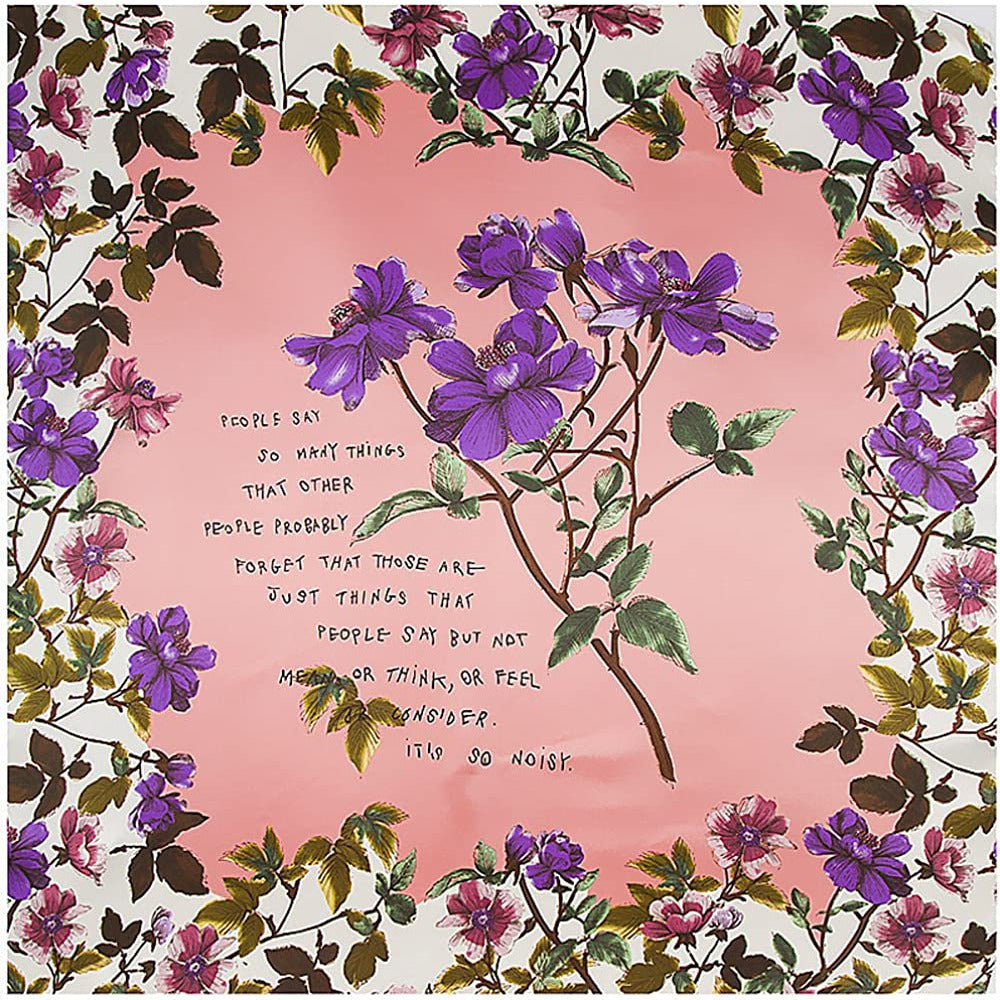 PEOPLE SAY
SO MANY THINGS
THAT OTHER
PEOPLE PROBABLY
FORGET THAT THOSE ARE
JUST THINGS THAT
PEOPLE SAY BUT NOT
MEAN, OR THINK, OR FEEL
OR CONSIDER.
IT'S SO NOISY.